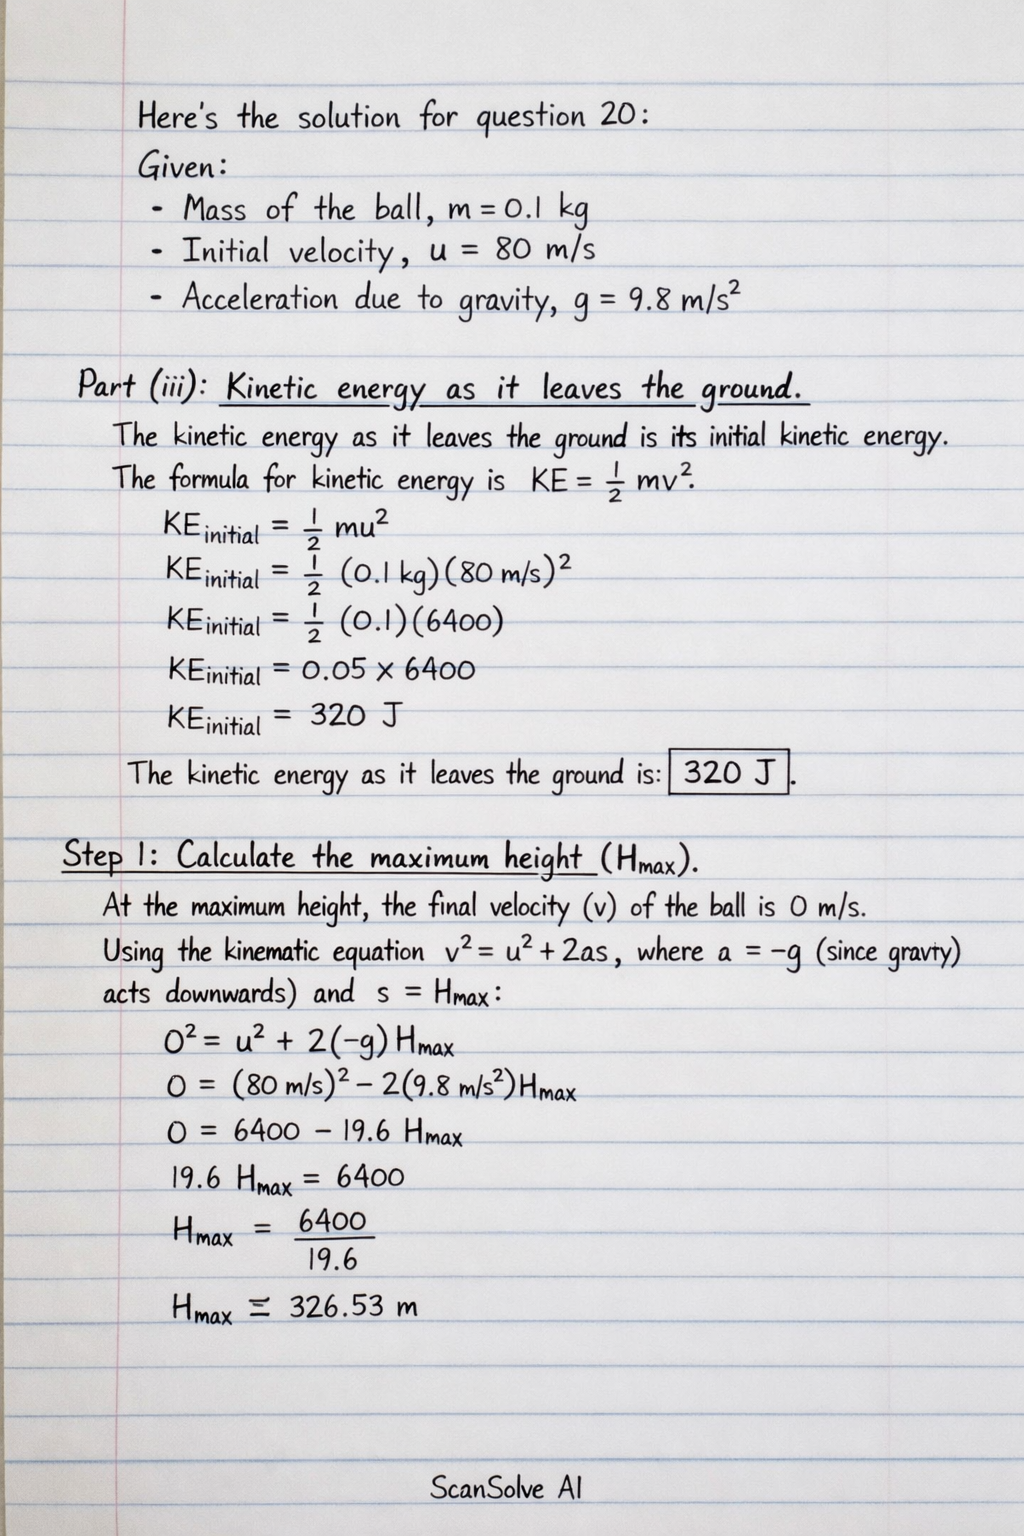 Here's the solution for question 20:
Given:
- Mass of the ball, m = 0.1 kg
- Initial velocity, u = 80 m/s
- Acceleration due to gravity, g = 9.8 m/s²
Part (iii): Kinetic energy as it leaves the ground.
The kinetic energy as it leaves the ground is its initial kinetic energy.
The formula for kinetic energy is KE = 1/2 mv².
KE initial = 1/2 mu²
KE initial = 1/2 (0.1 kg)(80 m/s)²
KE initial = 1/2 (0.1)(6400)
KE initial = 0.05 × 6400
KE initial = 320 J
The kinetic energy as it leaves the ground is: 320 J.
Step 1: Calculate the maximum height (Hmax).
At the maximum height, the final velocity (v) of the ball is 0 m/s.
Using the kinematic equation v² = u² + 2as, where a = -g (since gravty)
acts downwards) and s = Hmax:
0² = u² + 2(-g) Hmax
0 = (80 m/s)² - 2(9.8 m/s²)Hmax
0 = 6400 - 19.6 Hmax
19.6 Hmax = 6400
Hmax = 6400/19.6
Hmax Ξ 326.53 m
ScanSolve AI